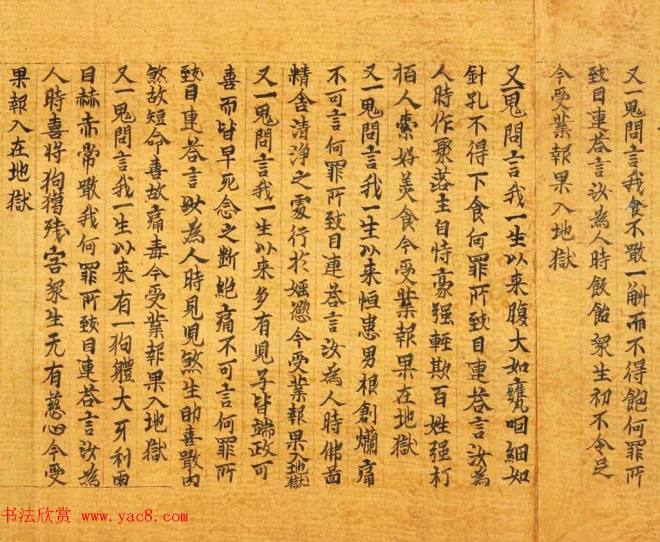 又一鬼問言我食不噉一斛而不得飽何罪所
致目連荅言汝為人時飲飴眾生初不令足
今受業報果入地獄
又一鬼問言我一生以来腹大如甕咽細如
針孔不得下食何罪所致目連荅言汝為
人時作聚落主自恃豪强輕欺百姓强打
栢人索好美食今受業報果在地獄
又一鬼問言我一生以来恒患男根創爛痛
不可言何罪所致目連荅言汝為人時佛啚
精舍清淨之處行於婬慾今受業報果入地獄
又一鬼問言我一生以来多有兒子皆端政可
喜而皆早死念之斷絶痛不可言何罪所
致目連荅言汝為人時見兒煞生助喜噉肉
煞故短命喜故痛毒今受業報果入地獄
又一鬼問言我一生以来有一狗軆大牙利兩
目赫赤常噉我何罪所致目連荅言汝為
人時喜將狗獦残害眾生无有慈心今受
果報入在地獄
书法欣赏 www.yac8.com